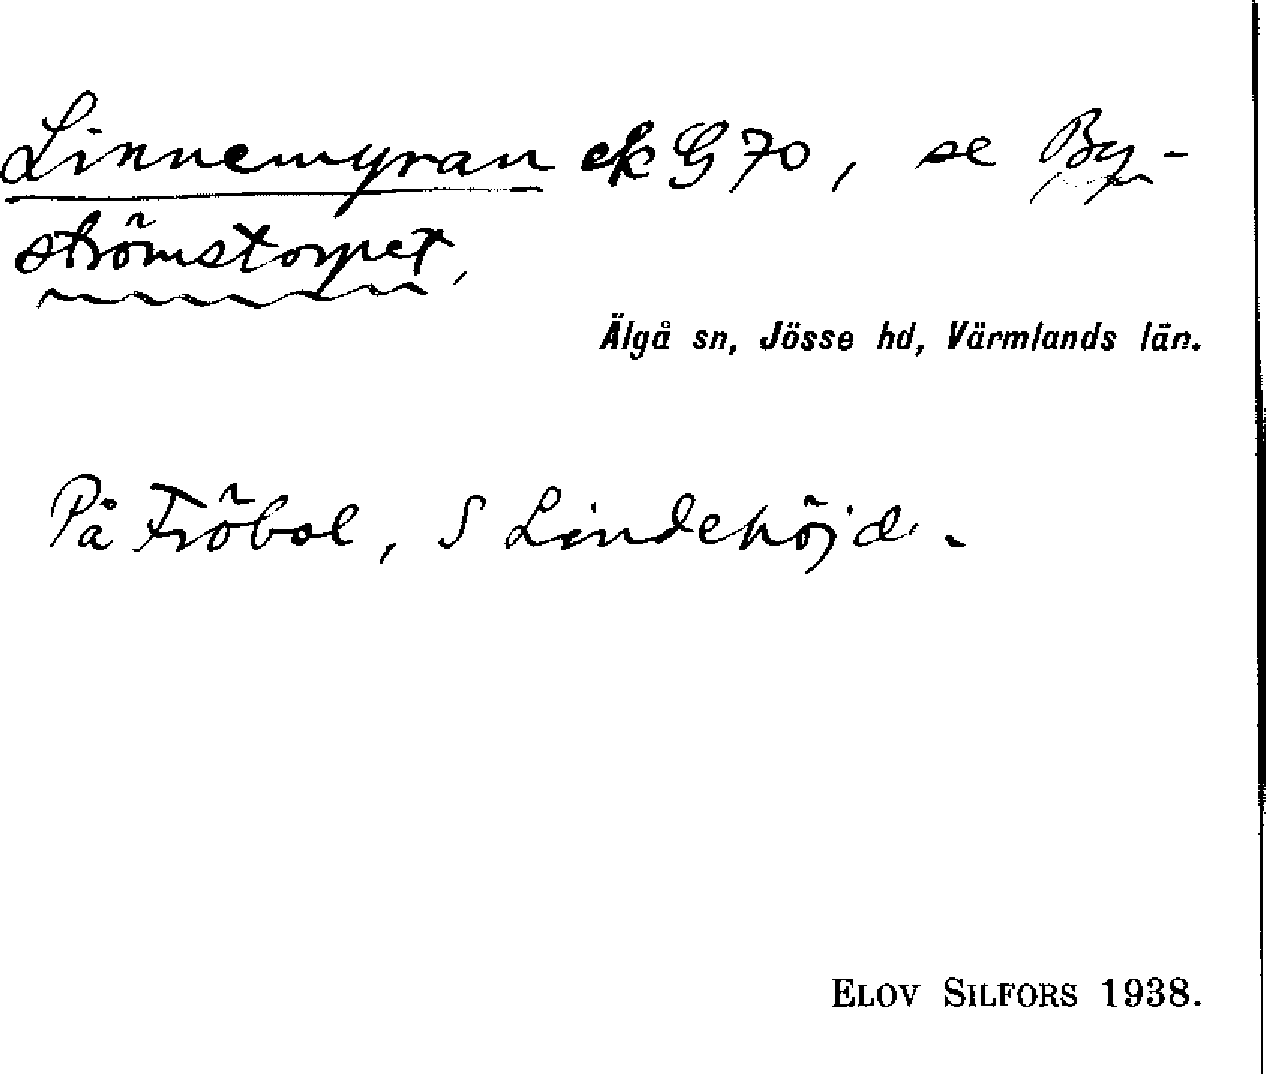 Linnemyran ek G70, se By-
strömstorpet,
Älgå sn, Jösse hd, Värmlands län.
På Fröbol, S Lindehöjd.
ELOV SILFORS 1938.